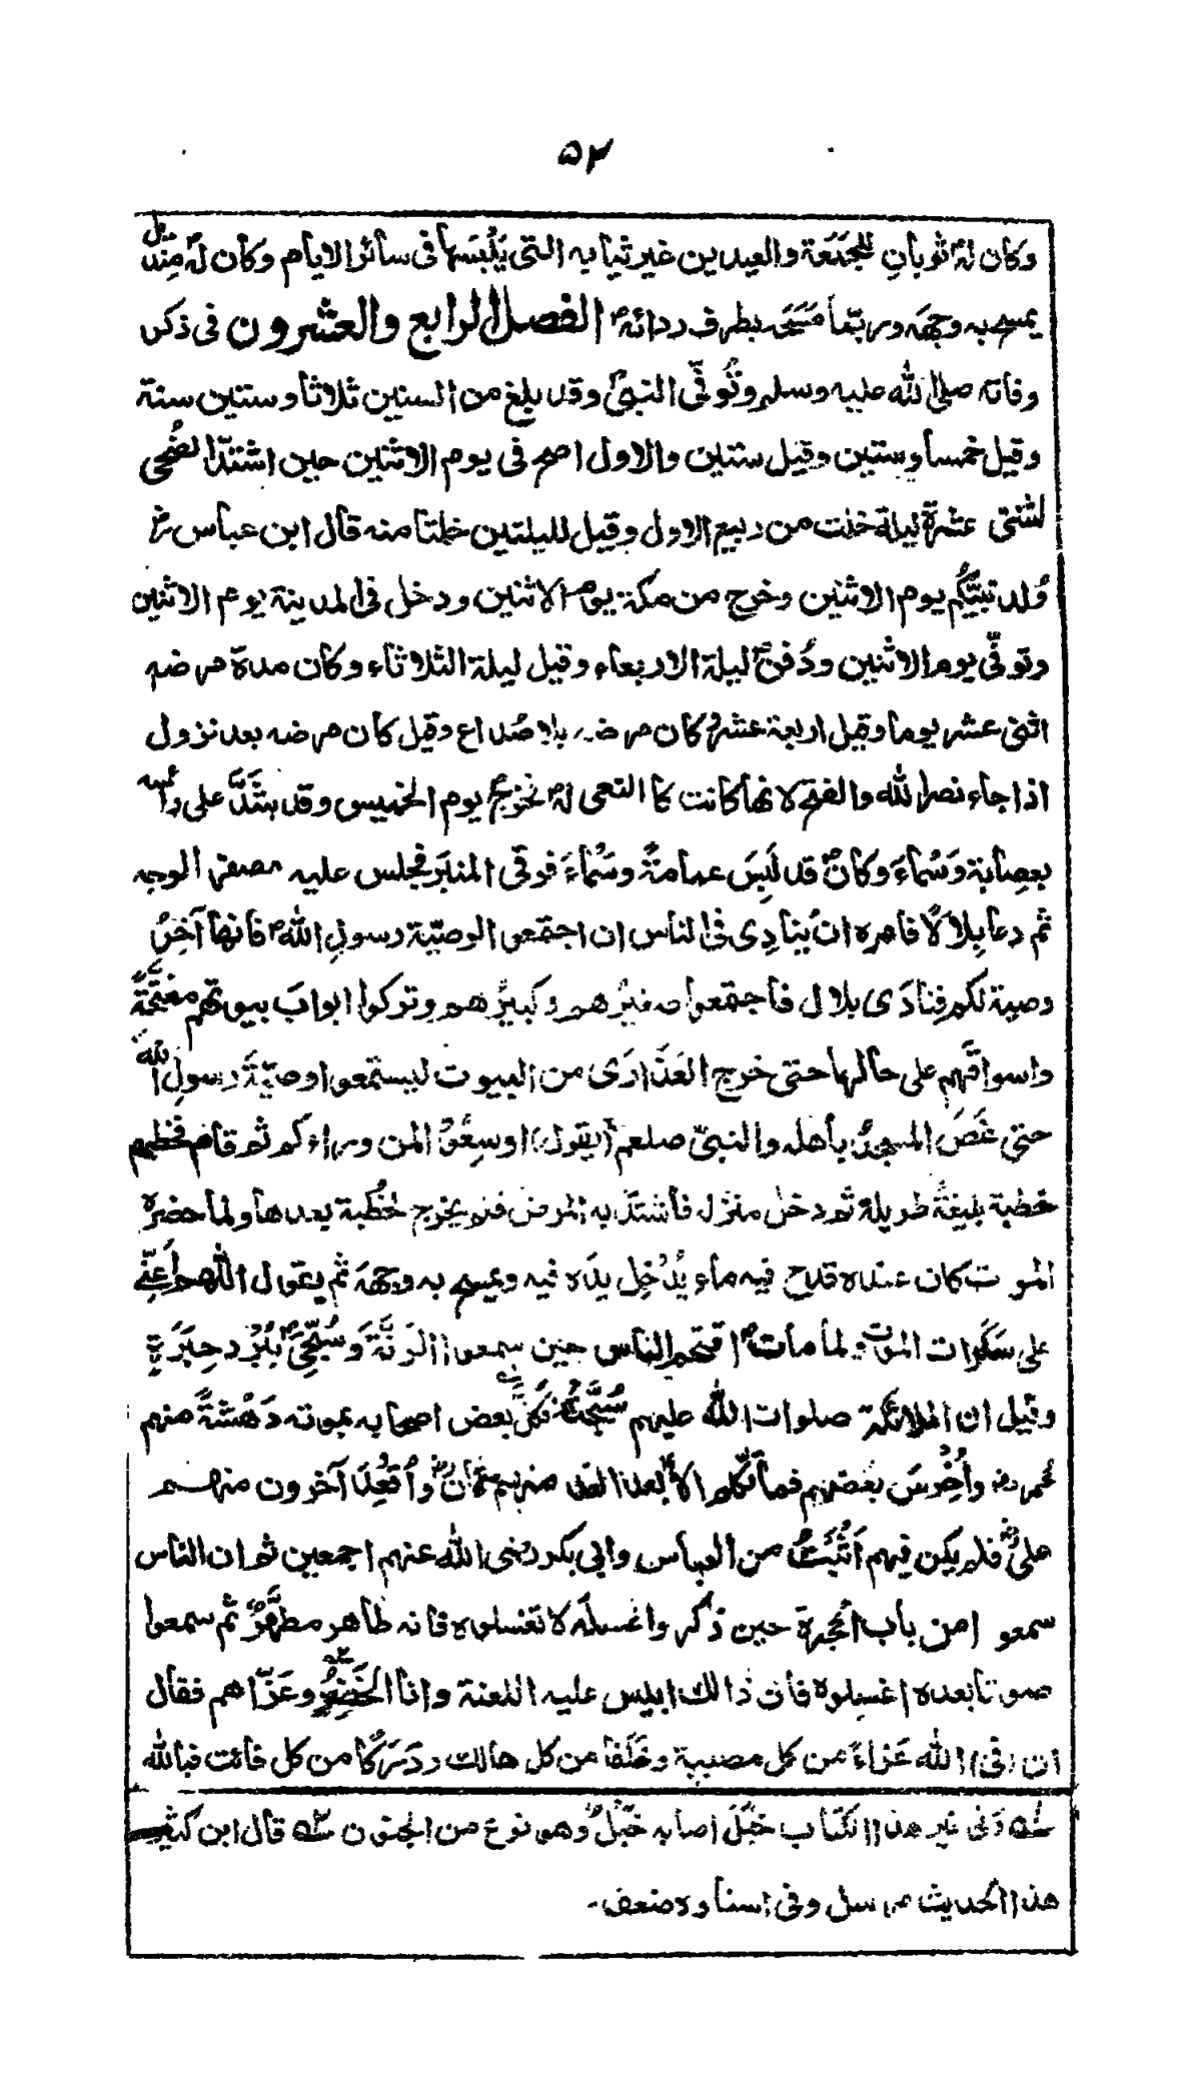 ۵۲
وكان لهٗ ثوبانِ للجُمُعَة والعيدين غير ثيابه التى يَلْبَسُها فى سائر الايام وكان لهٗ مِنْديل
يمسح به وجهَه وربّما مَسَحَه بطرف ردائهٖ الفصل الرابع والعشرون فى ذكر
وفاته صلى الله عليه وسلم وتُوفّى النبىؐ وقد بلغ من السنين ثلاثا وستين سنة
وقيل خمسا وستين وقيل ستين والاول اصح فى يوم الاثنين حين اشتدّ الضُحى
لثنتى عشرة ليلة خلت من ربيع الاول وقيل لليلتين خلتا منه قال ابن عباس رض
وُلد نبيّكمؐ يوم الاثنين وخرج من مكة يوم الاثنين ودخل فى المدينة يوم الاثنين
وتوفّى يوم الاثنين ودُفنؐ ليلة الاربعاء وقيل ليلة الثلاثاء وكان مدة مرضه
اثنى عشر يوما وقيل اربعة عشر وكان مرضه بالصُداع وقيل كان مرضه بعد نزول
اذا جاء نصر الله والفتح لانها كانت كالنعى لهٗ فخرجؐ يوم الخميس وقد شَدَّ على رأسه
بعِصابة دَسْماءَ وكانؐ قد لَبِسَ عمامةً دَسْماءَ فرقى المنبَر فجلس عليه مصفر الوجه
ثم دعا بِلالًا فامره انْ يُنادِى فى الناس ان اجتمعوا لوصيّة رسولِ اللهؐ فانها آخرُ
وصية لكم فنادَى بلال فاجتمعوا صغيرُهم وكبيرُهم وتركوا ابوابَ بيوتهم مفتحَّةً
واسواقَهم على حالها حتى خرج العَذَارَى من البيوت ليستمعوا وصيّةَ رسولِ الله
حتى غَصَ المسجدُ بأهله والنبىّ صلعم (يقول) اوسِعُوْا لمن وراءكم ثم قام فخطبهم
خطبة بليغةً طويلة ثم دخل منزله فاشتدّ به المرض فلم يخرج لخُطبة بعدها ولما حضره
الموت كان عنده قدح فيه ماء يُدْخِل يدَه فيه ويمسح به وجهَه ثم يقول اللّٰهم اَعِنِّى
على سَكَرات الموت ولما ماتؐ اقتحم الناس حين سمعوا الرَنَّةَ وسُجِّىَؐ ببُرْد حِبَرَةٍ
وقيل ان الملائكة صلوات الله عليهم سَجَّتْهُ فكذّب بعض اصحابه بموته دَهْشَةً منهم
عمر رض واُخْرِسَ بعضهم فما تكلم الا بعد الغد منهم عثمان رض واُقْعِدَ آخرون منهم
علىّ رض فلم يكن فيهم اَثْبَتُ من العباس وابى بكر رضى الله عنهم اجمعين ثم ان الناس
سمعوا من باب الحُجرة حين ذُكر واغسلَه لا تغسلوه فانه طاهر مطهَّرٌ ثم سمعوا
صوتا بعده اغسلوه فان ذالك ابليس عليه اللعنة وانا الخَضِرُ وعَزّاهم فقال
ان (فى) الله عَزاءً من كل مصيبة وخَلَفًا من كل هالك ودَرَكًا من كل فائت فبالله
؎۱ وفى غير هذا الكتاب خَبْلَ اصابه خَبْلٌ وهو نوع من الجنون ؎۲ قال ابن كثير
هذا الحديث مرسل وفى اسناده ضعف۔